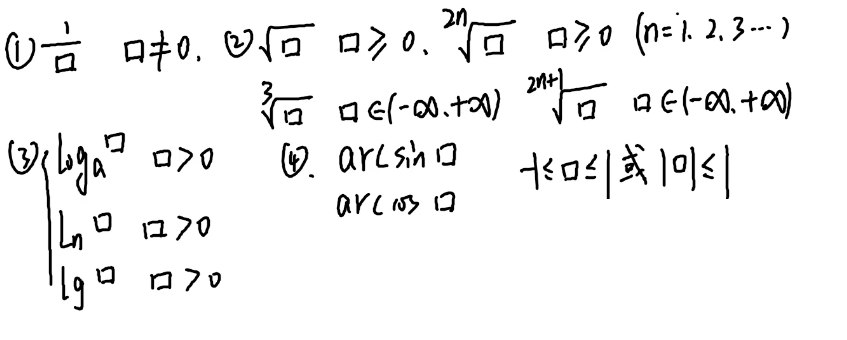 ① 1/□ □≠0. ② √□ □≥0. ²ⁿ√□ □≥0 (n=1. 2. 3…)
³√□ □∈(-∞.+∞) ²ⁿ⁺¹√□ □∈(-∞.+∞)
③ logₐ□ □>0 ④. arcsin□ -1≤□≤1或|□|≤1
arccos□
Ln□ □>0
lg□ □>0